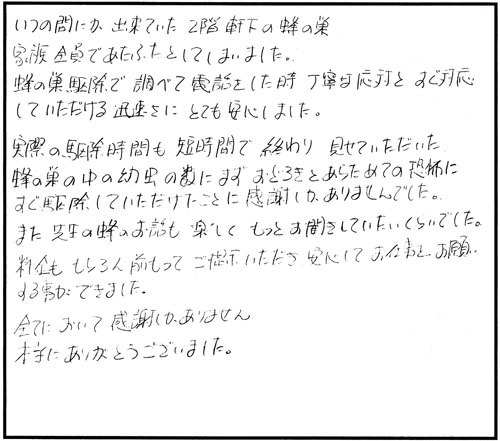 いつの間にか 出来ていた 2階軒下の蜂の巣
家族全員であたふたとしてしまいました。
蜂の巣駆除で調べて電話をした時 丁寧な応対と すぐ対応
していただける 迅速さに とても安心しました。
実際の駆除時間も 短時間で 終わり 見せていただいた
蜂の巣の中の幼虫の数にまず おどろきとあらためての恐怖に
すぐ駆除していただけたことに 感謝しかありませんでした。
また 先生の蜂のお話も 楽しく もっとお聞きしていたいくらいでした。
料金も もちろん前もって ご提示いただき 安心して お仕事を お願い
する事ができました。
全てにおいて 感謝しかありません
本当にありがとうございました。